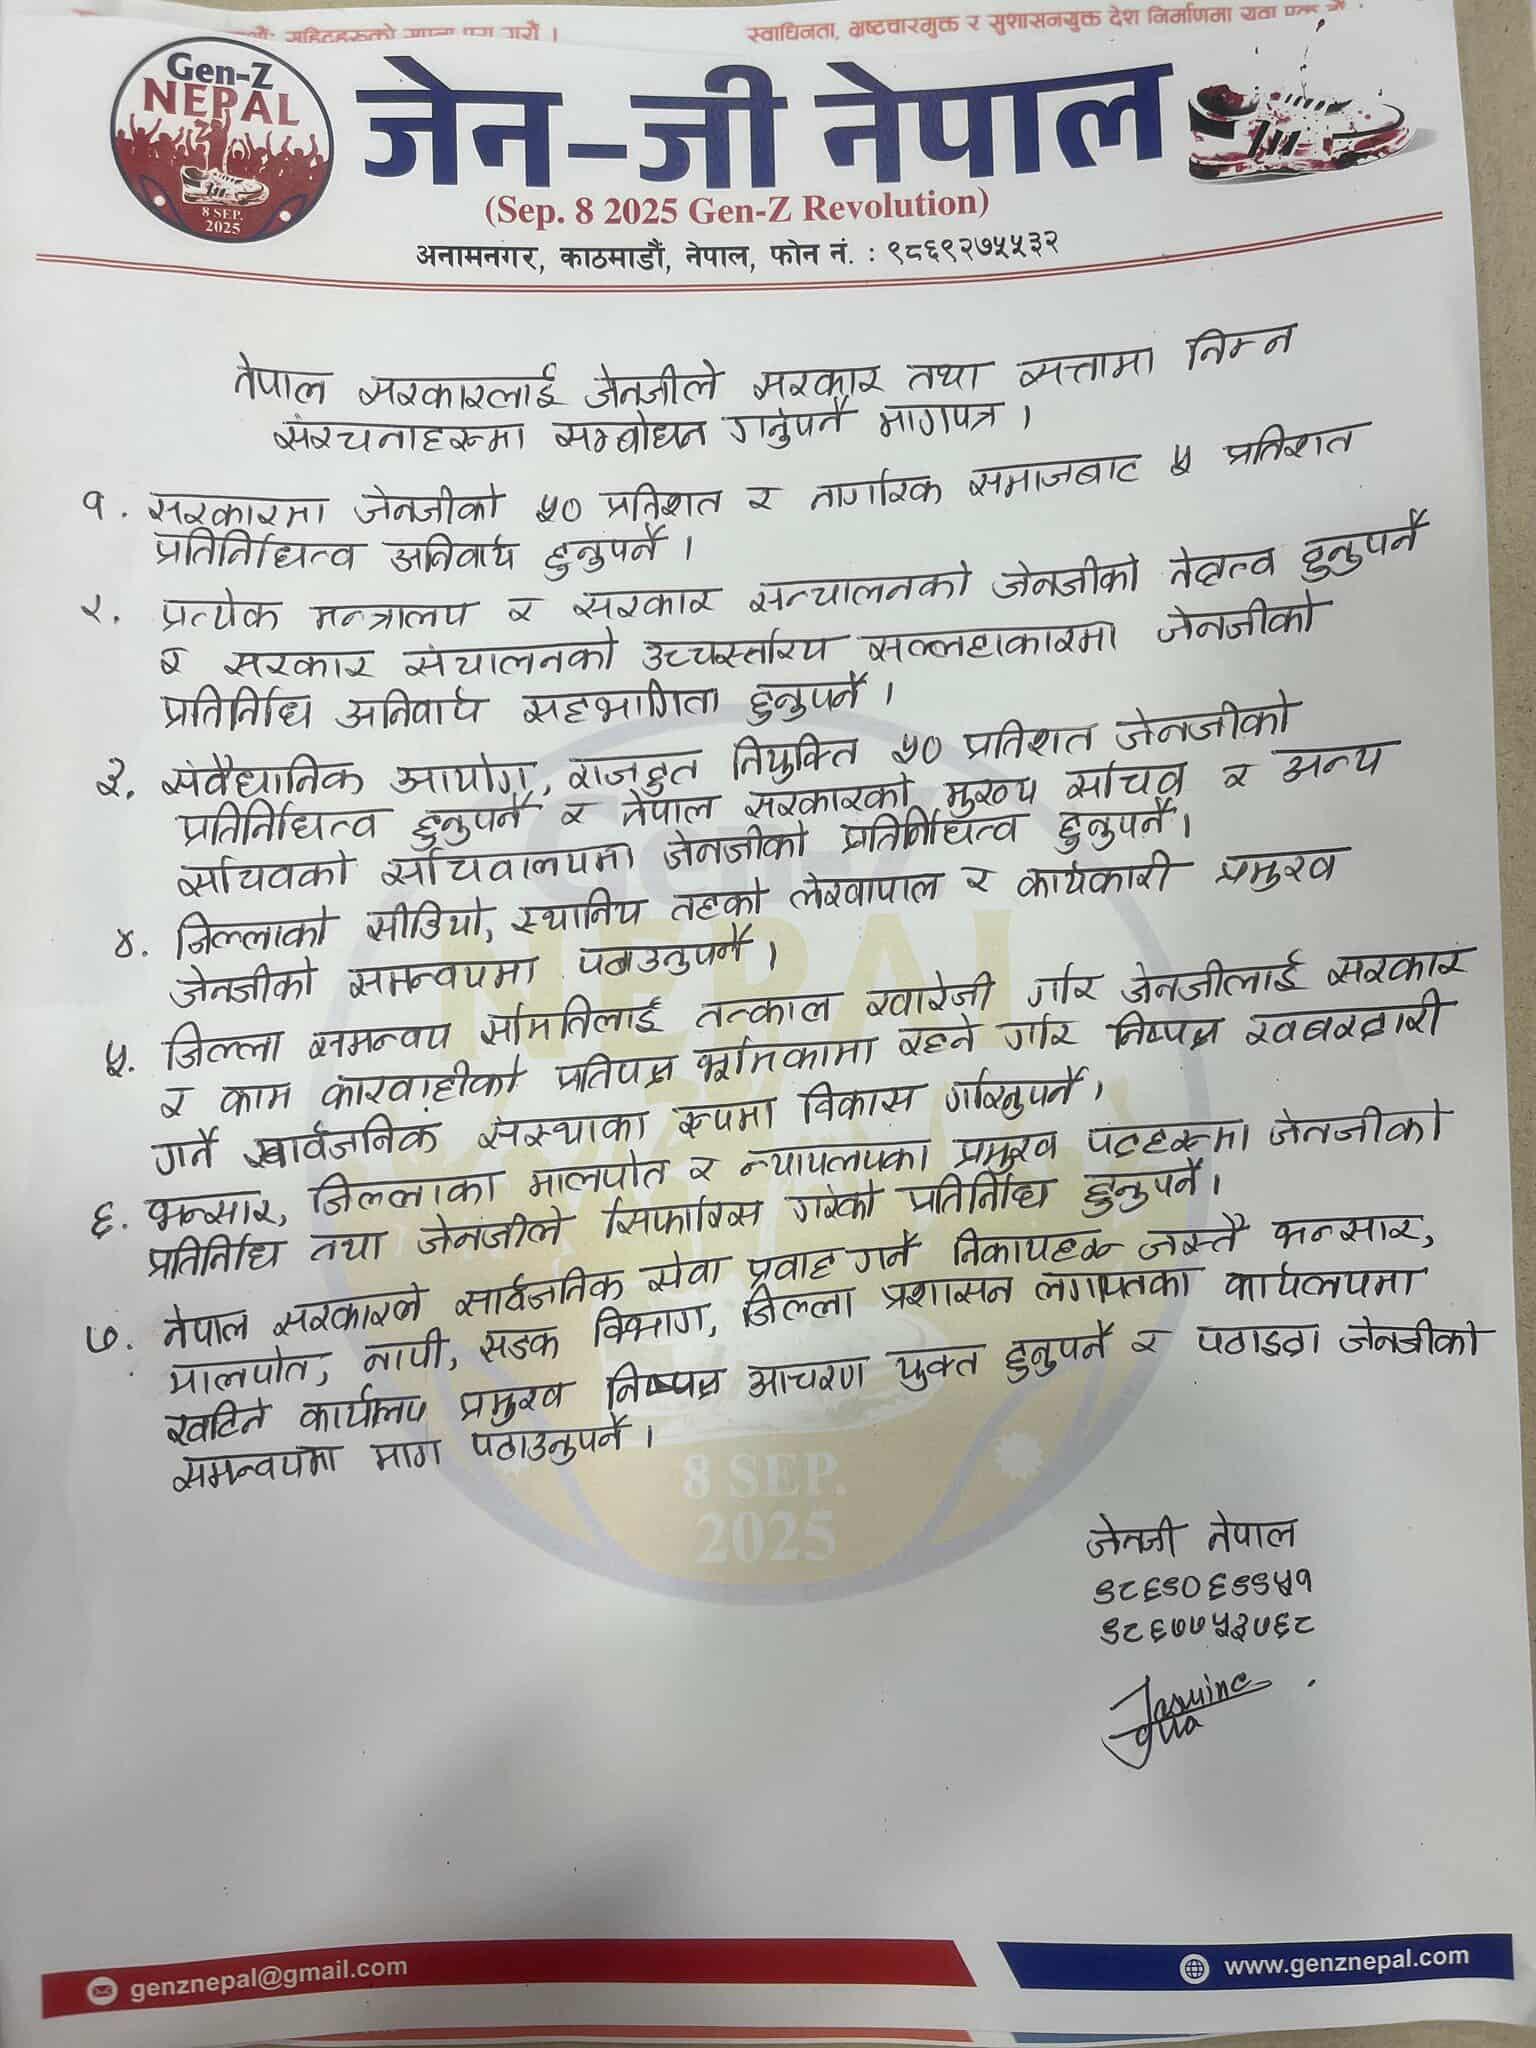 स्वाधिनता, भ्रष्टचारमुक्त र सुशासनयुक्त देश निर्माणमा
Gen-Z
NEPAL
8 SEP.
2025
जेन-जी नेपाल
(Sep. 8 2025 Gen-Z Revolution)
अनामनगर, काठमाडौं, नेपाल, फोन नं. : ९८६९२७५५३२
नेपाल सरकारलाई जेनजीले सरकार तथा सत्तामा निम्न
संरचनाहरुमा सम्बोधन गर्नुपर्ने मागपत्र ।
१. सरकारमा जेनजीको ५० प्रतिशत र नागरिक समाजबाट ५ प्रतिशत
प्रतिनिधित्व अनिवार्य हुनुपर्ने ।
२. प्रत्येक मन्त्रालय र सरकार सन्चालनको जेनजीको नेतृत्व हुनुपर्ने
र सरकार संचालनको उच्चस्तरिय सल्लहाकारमा जेनजीको
प्रतिनिधि अनिवार्य सहभागिता हुनुपर्ने ।
३. संवैधानिक आयोग, राजदुत नियुक्ति ५० प्रतिशत जेनजीको
प्रतिनिधित्व हुनुपर्ने र नेपाल सरकारको मुख्य सचिव र अन्य
सचिवको सचिवालयमा जेनजीको प्रतिनिधित्व हुनुपर्ने ।
४. जिल्लाको सीडियो, स्थानिय तहको लेखापाल र कार्यकारी प्रमुख
जेनजीको समन्वयमा पठाउनुपर्ने ।
५. जिल्ला समन्वय समितिलाई तत्काल खारेजी गरि जेनजीलाई सरकार
र काम कारवाहीको प्रतिपक्ष भूमिकामा रहने गरि निष्पक्ष खबरदारी
गर्ने सार्वजनिक संस्थाका रुपमा विकास गरिनुपर्ने ।
६. भन्सार, जिल्लाका मालपोत र न्यायलयका प्रमुख पदहरुमा जेनजीको
प्रतिनिधि तथा जेनजीले सिफारिस गरेको प्रतिनिधि हुनुपर्ने ।
७. नेपाल सरकारले सार्वजनिक सेवा प्रवाह गर्ने निकायहरु जस्तै भन्सार,
मालपोत, नापी, सडक विभाग, जिल्ला प्रशासन लगायतका कार्यलयमा
खटिने कार्यालय प्रमुख निष्पक्ष आचरण युक्त हुनुपर्ने र पठाइदा जेनजीको
समन्वयमा माग पठाउनुपर्ने ।
8 SEP.
2025
जेनजी नेपाल
९८६९०६९९५१
९८६७७५३७६८
Jasmine
genznepal@gmail.com
www.genznepal.com